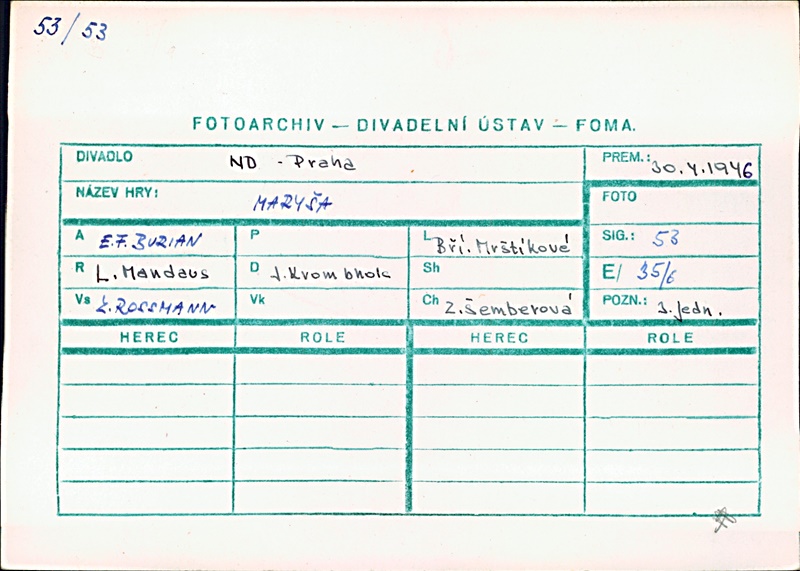 53/53
FOTOARCHIV — DIVADELNÍ ÚSTAV — FOMA.
DIVADLO ND - Praha PREM.: 30.4.1946
NÁZEV HRY: MARYŠA FOTO
A E.F. BURIAN P L Bří. Mrštíkové SIG.: 53
R L. Mandaus D J. Krombholc Sh E/ 35/6
Vs Z. ROSSMANN Vk Ch Z. Šemberová POZN.: 3. jedn.
HEREC ROLE HEREC ROLE